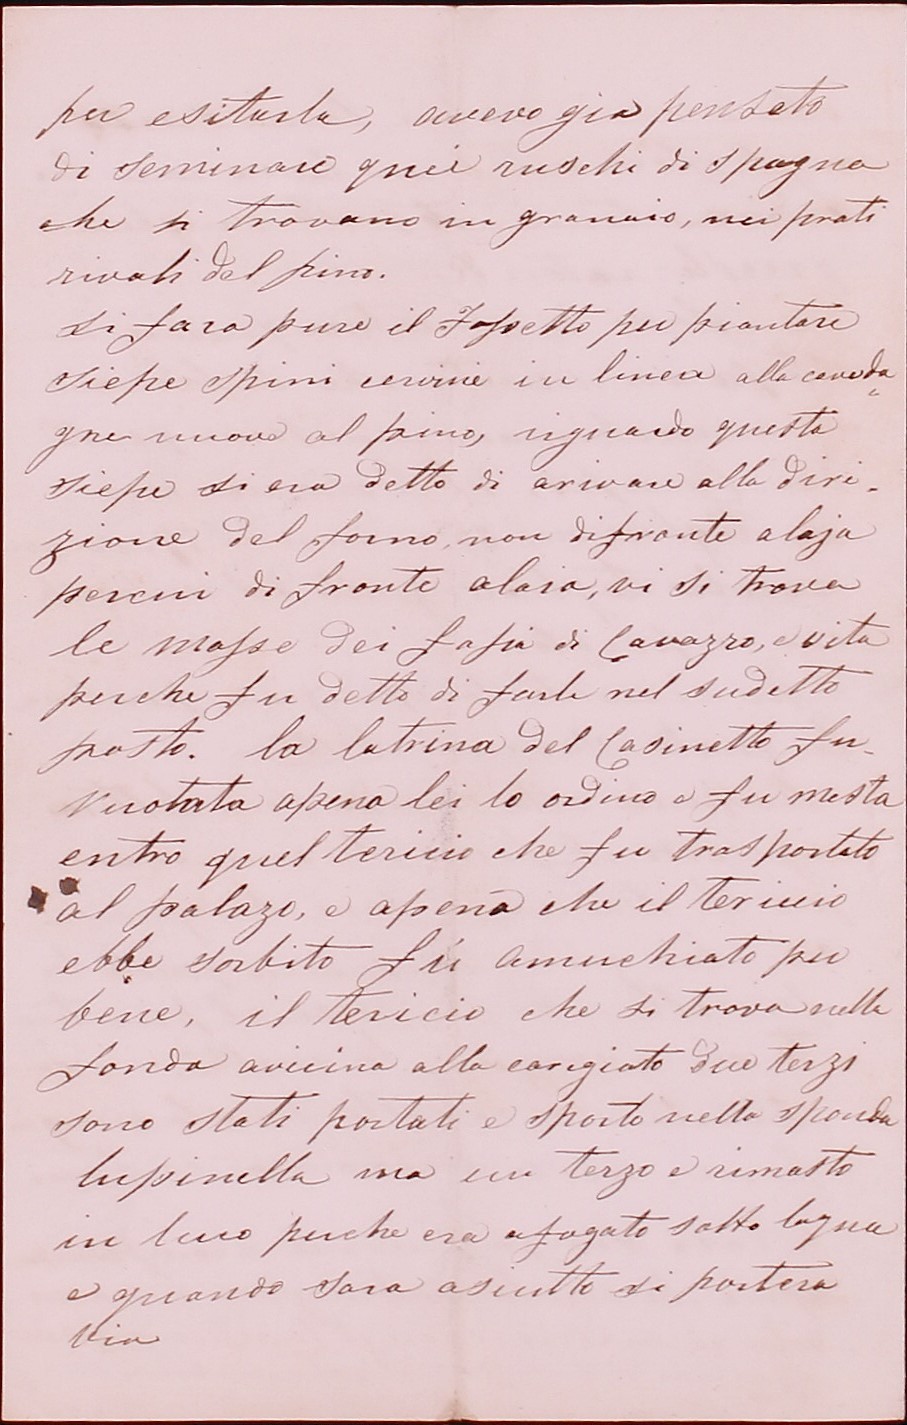 per esitarla, avevo gia pensato
di seminare quei ruschi di spagna
che si trovano in granaio, nei prati
rivali del pino.
si fara pure il Fossetto per piantare
siepe spini cervini in linea alla caveda=
gne nuova al pino, riguardo questa
siepe si era detto di arivare alla diri-
zione del forno, non difronte alaja
percui di fronte alaia, vi si trova
le masse dei fassi di Cavazzo, e vita
perche fu detto di farle nel sudetto
posto. la latrina del Casinetto fu
vuotata apena lei lo ordino e fu mesta
entro quel tericio che fu trasportato
al palazo, e apena che il tericcio
ebbe sorbito fu amuchiato per
bene, il tericio che si trova nella
fonda avicina alla caregiato due terzi
sono stati portati e sporto nella sponda
lupinella ma un terzo e rimasto
in luco perche era afogato sotto lagua
e quando sara asiutto si portera
via